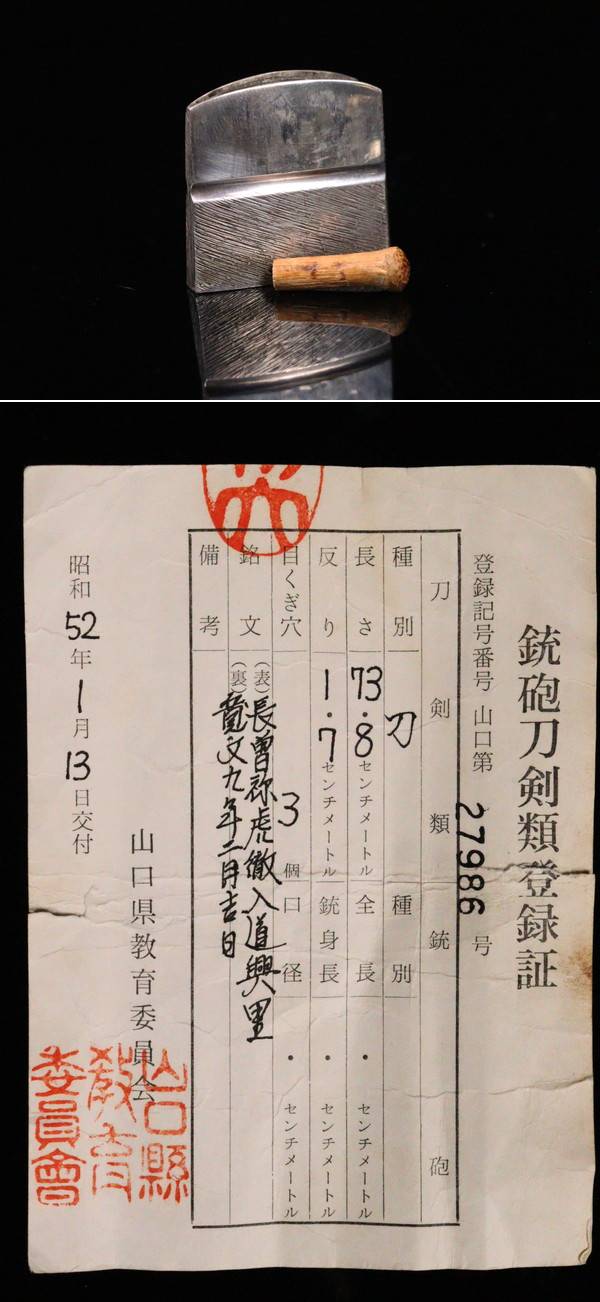 銃砲刀剣類登録証
登録記号番号 山口第 27986 号
刀剣類 銃砲
種別 刀 種別
長さ 73.8 センチメートル 全長 ・ センチメートル
反り 1.7 センチメートル 銃身長 ・ センチメートル
目くぎ穴 3 個 口径 ・ センチメートル
銘文 (表) 長曽祢虎徹入道興里
(裏) 寛文九年二月吉日
備考
昭和52年1月13日交付
山口県教育委員会
山口縣
教育
委員會